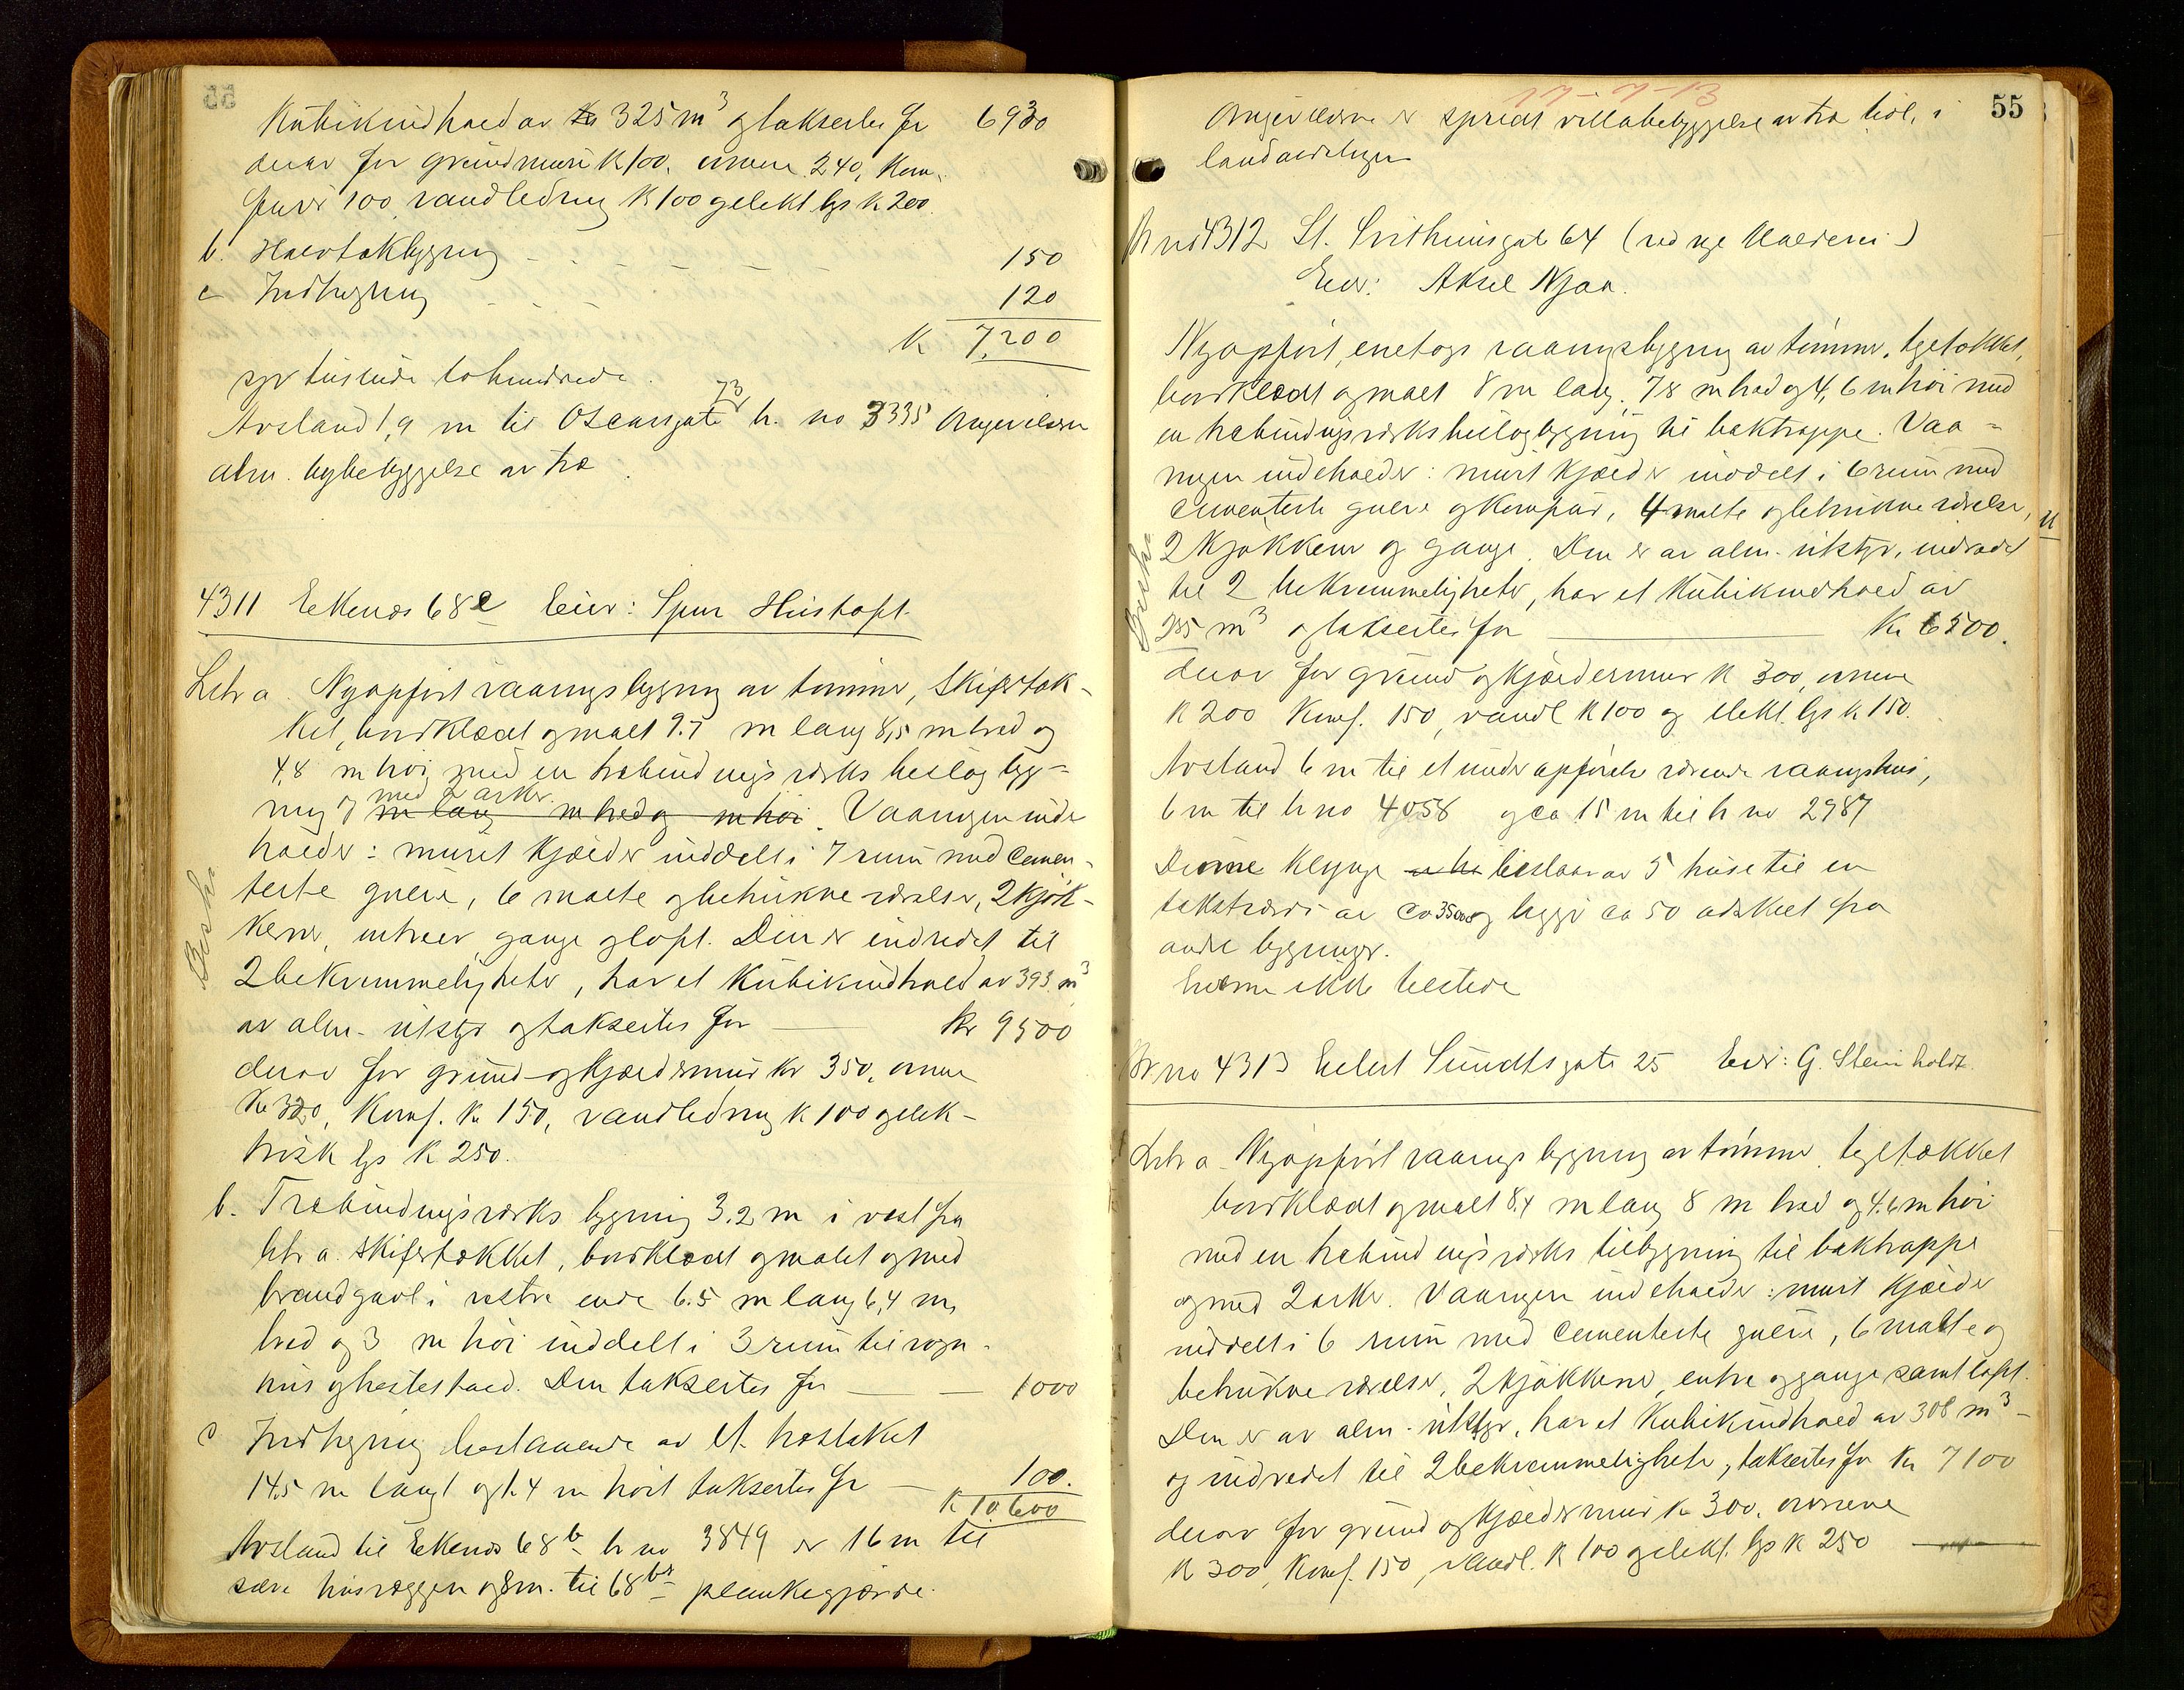 Kubikindhold av 325 m³ og takseres for 6930
derav for grundmur K 100, ovnene 240, Kom-
fyrer 100, vandledning K 100 og elekt. lys K 200.
b. Halvtakbygning 150
c Indhegning 120
K 7,200
syv tusinde tohundrede.
Avstand 1,9 m til Oscarsgate 73 br. no 3335 Omgivelserne
alm. bybebyggelse av træ.
4311 Eekenæs 68e Eier:
Litr a. Nyopført vaaningsbygning av tømmer, Skifertæk-
ket, bordklædt og malt 9.7 m lang 8,5 m bred og
4,8 m høi med en træbindingsverks tilbyg-
ning og m lang m bred og m høi. Vaaningen inde
med 2 arker
holder: muret kjælder inddelt i 7 rum med cemen-
terte gulve, 6 malte og betrukne værelser, 2 kjøk-
kener, entreer, gange og loft. Den er indredet til
2 bekvemmeligheter, har et Kubikindhold av 393 m³
av alm. utstyr og takseres for Kr 9500
derav for grund- og kjældermur kr 350, ovnene
Kr 320, Komf. K 150, vandledning K 100 og elek-
trisk lys K 250.
b. Træbindingsverks bygning 3.2 m i vest fra
litr a. skifertækket, bordklædt og malet og med
brandgavl i vestre ende 6.5 m lang 6,4 m
bred og 3 m høi inddelt i 3 rum til vogn-
hus og hestestald. Den takseres for 1000
c Indhegning bestaaende av et
14.5 m langt og 1.4 m høit takseres for 100.
K 10.600
Avstand til Eekenæs 68b br no 3849 er 16 m til
selve husvæggen og 8 m. til plankegjærde.
55
17-7-13
Omgivelserne er spredt villabebyggelse av træ i
landavdelingen
Br no 4312 St. Svithunsgate 64 (ved nye Maaleveien)
Eier: Aksel Njaa.
Nyopført, enetages vaaningsbygning av tømmer, tegltækket,
bordklædt og malt 8 m lang, 7,8 m bred og 4,6 m høi med
en træbindingsverks tilbygning til baktrappe. Vaa-
ningen indeholder: muret kjælder inddelt i 6 rum med
cementerte gulve og komfur, 4 malte og betrukne værelser,
2 kjøkkener og gange. Den er av alm. utstyr, indredet
til 2 bekvemmeligheter, har et Kubikindhold av
285 m³ og takseres for Kr 6500.
derav for grund og kjældermur K 300, ovnene
K 200 Komf. 150, vandl. K 100 og elekt. lys K 150.
Avstand 6 m til et under opførelse værende vaaningshus,
6 m til br no 4058 og ca 15 m til br no 2987
Denne klynge bestaar av 5 huse til en
takstværdi av ca 35000 og ligger ca 50 adskilt fra
andre bygninger.
Br no 4313 Eilert Sundtsgate 25 Eier: G. Steinholdt.
Litr a. Nyopført vaaningsbygning av tømmer, tegltækket
bordklædt og malt 8.4 m lang 8 m bred og 4.6 m høi
med en træbindingsverks tilbygning til baktrappe
og med 2 arker. Vaaningen indeholder: muret kjælder
inddelt i 6 rum med cementerte gulve, 6 malte og
betrukne værelser, 2 kjøkkener, entre og gange samt loft.
Den er av alm. utstyr, har et Kubikindhold av 308 m³
og indredet til 2 bekvemmeligheter, takseres for Kr 7100
derav for grund og kjældermur K 300, ovnene
K 300, Komf. 150, vandl. K 100 og elekt. lys K 250